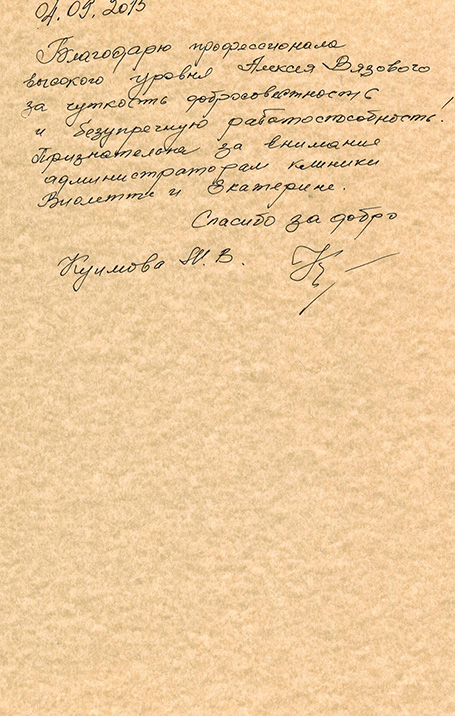 04.09.2015
Благодарю профессионала
высокого уровня Алексея Вязового
за чуткость добросовестность
и безупречную работоспособность!
Признательна за внимание
администраторам клиники
Виолетте и Екатерине.
Спасибо за добро
Куимова М.В.